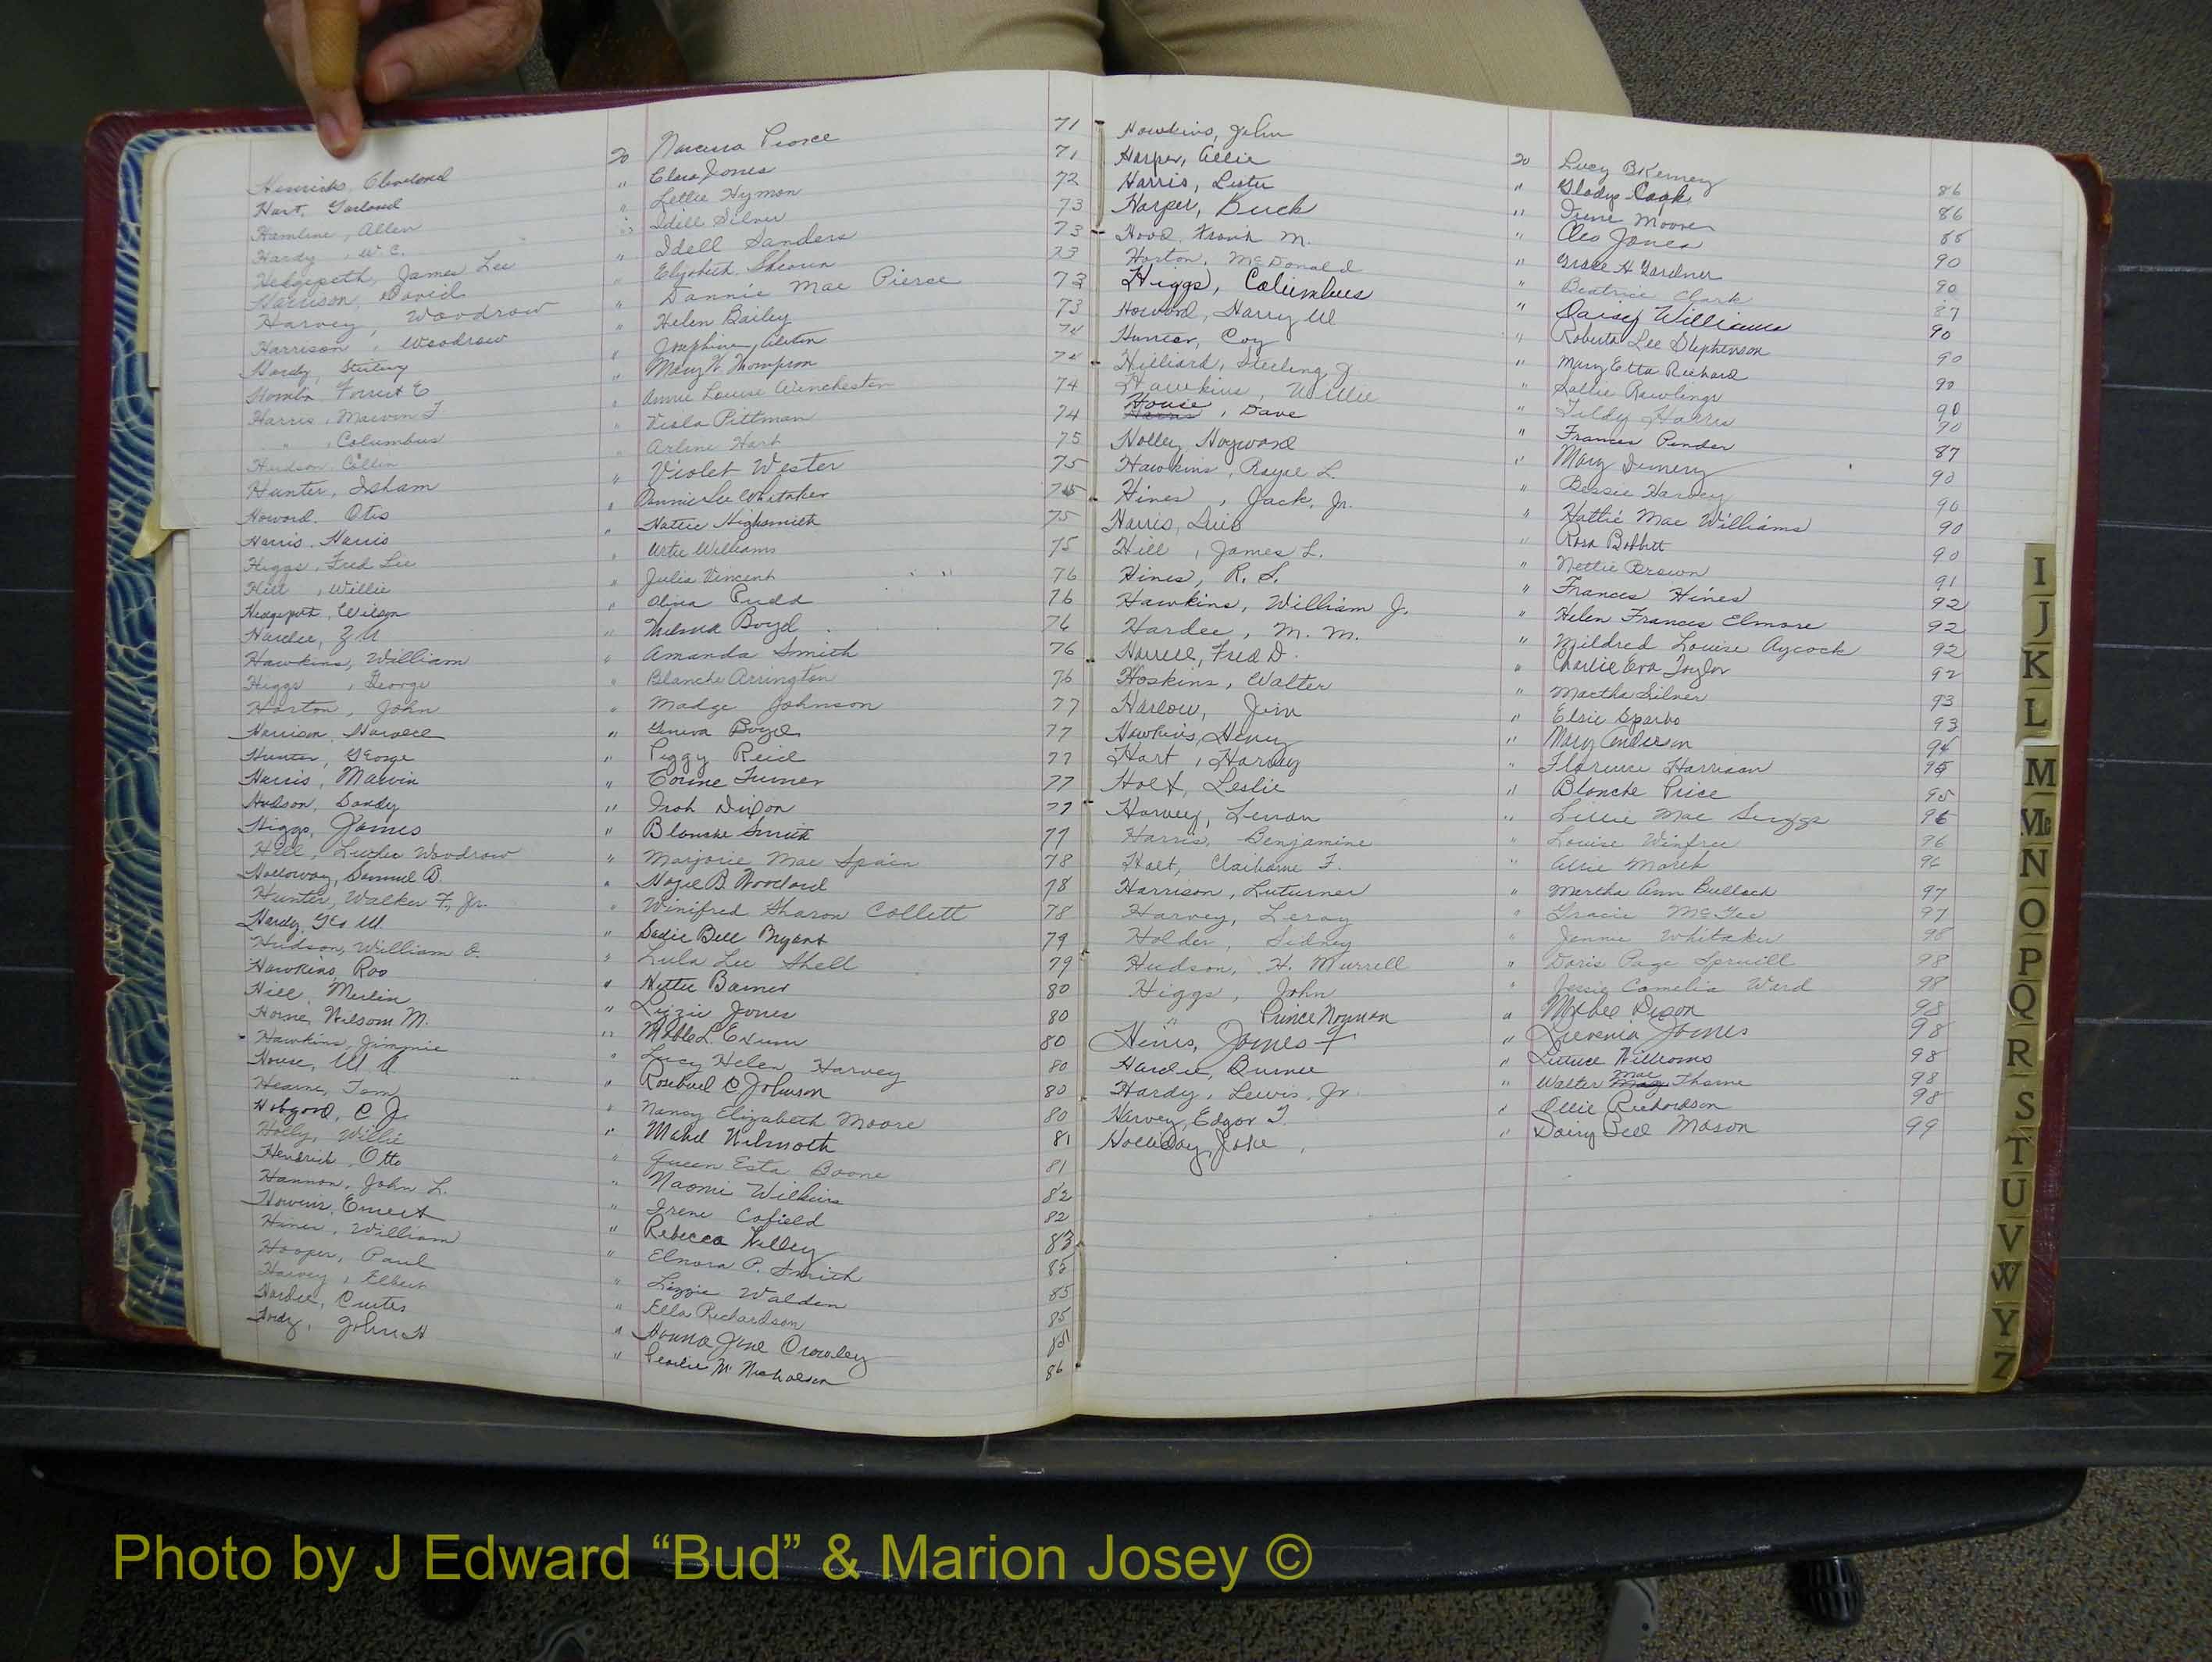 Henricks, Cleveland 20 Narcissa Pierce 71
Hart, Garland " Clara Jones 71
Hamline, Allen " Lettie Hymon 72
Hardy, W. C. " Idell Silver 73
Hedgepeth, James Lee " Idell Sanders 73
Harrison, David " Elizabeth Shearin 73
Harvey, Woodrow " Dannie Mae Pierce 73
Harrison, Woodrow " Helen Bailey 73
Hardy, " Josephine Alston 74
Forrest E " Mary W. Thompson 74
Harris, Marvin T " Annie Louise Winchester 74
" , Columbus " Viola Pittman 74
Hudson, Collin " Arline Hart 75
Hunter, Isham " Violet Wester 75
Howard, Otis " Annie Lee Whitaker 75
Harris, Harris " Hattie Highsmith 75
Higgs, Fred Lee " Williams 75
Hill, Willie " Julia Vincent 76
Hedgepeth, Wilson " Olivia Rudd 76
Hardee, Z M " Wilma Boyd 76
Hawkins, William " Amanda Smith 76
Higgs, George " Blanche Arrington 76
Horton, John " Madge Johnson 77
Harrison, Horace " Geneva Boyd 77
Hunter, George " Peggy Reid 77
Harris, Marvin " Corine Turner 77
Hudson, Dandy " Dixon 77
Higgs, James " Blanche Smith 77
Hill, Luther Woodrow " Marjorie Mae Spain 78
Holloway, Samuel D. " Hazel B. Woodard 78
Hunter, Walker F., Jr. " Winifred Sharon Collett 78
Hardy, Geo W. " Sadie Bell Bryant 79
Hudson, William O. " Lula Lee Shell 79
Hawkins, Roo " Hettie Barner 80
Hill, Merlin " Lizzie Jones 80
Horne, Wilson M. " Mable L. Exum 80
Hawkins, Jimmie " Lucy Helen Harvey 80
House, W. A. " Rosebud C. Johnson 80
Hearne, Tom " Nancy Elizabeth Moore 80
Hobgood, C. J. " Mabel Wilmoth 81
Holly, Willie " Queen Esta Boone 81
Hendrick, Otto " Naomi Wilkins 82
Hannon, John L. " Irene Cofield 82
Ernest " Rebecca Willey 83
Hines, William " Elnora P. Smith 85
Hooper, Paul " Lizzie Walden 85
Harvey, Elbert " Ella Richardson 85
Hardee, Curtis " Jane Crowley
John H " M. Nicholson 86
Hawkins, John 20 Lucy B Kerney 86
Harper, Allie " Gladys Cook 86
Harris, Lester " Irene Moore 86
Harper, Buck " Cleo Jones 90
Hood, Frank M. " Grace H. Gardner 90
Horton, McDonald " Beatrice Clark 87
Higgs, Columbus " Daisy Williams 90
Howard, Harry W " Roberta Lee Stephenson 90
Hunter, Coy " Mary Etta Richard 90
Hilliard, Sterling J " Sallie Rawlings 90
Hawkins, Willie " Tildy Harris 90
House, Dave " Frances Pender 87
Holley, Hayward " Mary Demery 90
Hawkins, Royal L. " Bessie Harvey 90
Hines, Jack, Jr. " Hattie Mae Williams 90
Harris, Luis " Rosa Bobbitt 90
Hill, James L. " Nettie Brown 91
Hines, R. S. " Frances Hines 92
Hawkins, William J. " Helen Frances Elmore 92
Hardee, M. M. " Mildred Louise Aycock 92
Harrell, Fred D. " Charlie Eva Taylor 92
Hoskins, Walter " Martha Silver 93
Harlow, Jim " Elsie Sparks 93
Hawkins, Henry " Mary Anderson 94
Hart, Harvey " Florence Harrison 95
Holt, Leslie " Blanche Price 95
Harvey, Lenon " Lillie Mae Suggs 96
Harris, Benjamine " Louise Winfree 96
Holt, Claiborne F. " Allie March 96
Harrison, Luturner " Mertha Ann Bullock 97
Harvey, Leroy " Gracie McGee 97
Holder, Sidney " Jennie Whitaker 98
Hudson, H. Murrell " Doris Page Spruill 98
Higgs, John " Jessie Camelia Ward 98
" Prince Norman " Mabel Dixon 98
Hines, James T " Luvenia Joines 98
Hardee, " Williams 98
Hardy, Lewis, Jr. " Walter Mae Thorne 98
Harvey, Edgar T. " Ollie Richardson 98
Holliday, Jake " Daisy Bell Mason 99
I
J
K
L
M
Mc
N
O
P
Q
R
S
T
U
V
W
Y
Z
Photo by J Edward “Bud” & Marion Josey ©